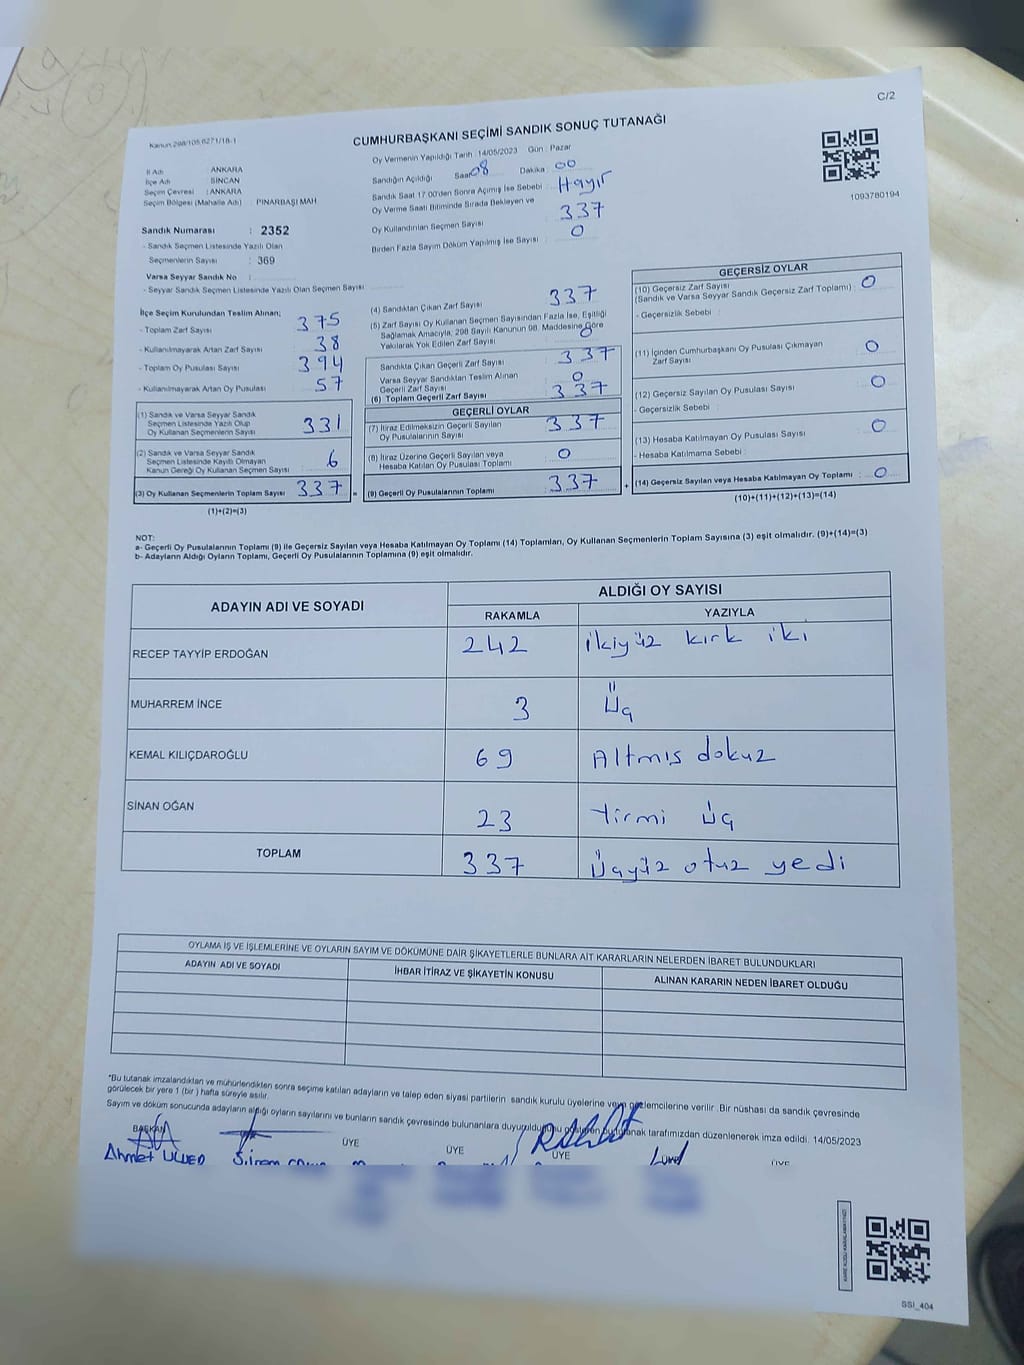 C/2
Kanun 298/105,6271/18-1
CUMHURBAŞKANI SEÇİMİ SANDIK SONUÇ TUTANAĞI
1093780194
İl Adı : ANKARA
İlçe Adı : SİNCAN
Seçim Çevresi : ANKARA
Seçim Bölgesi (Mahalle Adı) : PINARBAŞI MAH
Sandık Numarası : 2352
- Sandık Seçmen Listesinde Yazılı Olan
Seçmenlerin Sayısı : 369
Varsa Seyyar Sandık No :
- Seyyar Sandık Seçmen Listesinde Yazılı Olan Seçmen Sayısı
Oy Vermenin Yapıldığı Tarih : 14/05/2023 Gün : Pazar
Sandığın Açıldığı Saat 08 Dakika : 00
Sandık Saat 17.00'den Sonra Açımış İse Sebebi : Hayır
Oy Verme Saati Bitiminde Sırada Bekleyen ve
Oy Kullandırılan Seçmen Sayısı 337
Birden Fazla Sayım Döküm Yapılmış İse Sayısı : 0
İlçe Seçim Kurulundan Teslim Alınan;
- Toplam Zarf Sayısı 375
- Kullanılmayarak Artan Zarf Sayısı 38
- Toplam Oy Pusulası Sayısı 394
- Kullanılmayarak Artan Oy Pusulası 57
(1) Sandık ve Varsa Seyyar Sandık
Seçmen Listesinde Yazılı Olup
Oy Kullanan Seçmenlerin Sayısı 331
(2) Sandık ve Varsa Seyyar Sandık
Seçmen Listesinde Kayıtlı Olmayan
Kanun Gereği Oy Kullanan Seçmen Sayısı 6
(3) Oy Kullanan Seçmenlerin Toplam Sayısı 337 =
(1)+(2)=(3)
(4) Sandıktan Çıkan Zarf Sayısı 337
(5) Zarf Sayısı Oy Kullanan Seçmen Sayısından Fazla İse, Eşitliği
Sağlamak Amacıyla, 298 Sayılı Kanunun 98. Maddesine Göre
Yakılarak Yok Edilen Zarf Sayısı 0
Sandıkta Çıkan Geçerli Zarf Sayısı 337
Varsa Seyyar Sandıktan Teslim Alınan
Geçerli Zarf Sayısı 0
(6) Toplam Geçerli Zarf Sayısı 337
GEÇERLİ OYLAR
(7) İtiraz Edilmeksizin Geçerli Sayılan
Oy Pusulalarının Sayısı 337
(8) İtiraz Üzerine Geçerli Sayılan veya
Hesaba Katılan Oy Pusulası Toplamı 0
(9) Geçerli Oy Pusulalarının Toplamı 337 +
GEÇERSİZ OYLAR
(10) Geçersiz Zarf Sayısı
(Sandık ve Varsa Seyyar Sandık Geçersiz Zarf Toplamı) : 0
- Geçersizlik Sebebi :
(11) İçinden Cumhurbaşkanı Oy Pusulası Çıkmayan
Zarf Sayısı : 0
(12) Geçersiz Sayılan Oy Pusulası Sayısı : 0
- Geçersizlik Sebebi :
(13) Hesaba Katılmayan Oy Pusulası Sayısı : 0
- Hesaba Katılmama Sebebi :
(14) Geçersiz Sayılan veya Hesaba Katılmayan Oy Toplamı : 0
(10)+(11)+(12)+(13)=(14)
NOT:
a- Geçerli Oy Pusulalarının Toplamı (9) ile Geçersiz Sayılan veya Hesaba Katılmayan Oy Toplamı (14) Toplamları, Oy Kullanan Seçmenlerin Toplam Sayısına (3) eşit olmalıdır. (9)+(14)=(3)
b- Adayların Aldığı Oyların Toplamı, Geçerli Oy Pusulalarının Toplamına (9) eşit olmalıdır.
ADAYIN ADI VE SOYADI ALDIĞI OY SAYISI
RAKAMLA YAZIYLA
RECEP TAYYİP ERDOĞAN 242 ikiyüz kırk iki
MUHARREM İNCE 3 Üç
KEMAL KILIÇDAROĞLU 69 Altmış dokuz
SİNAN OĞAN 23 Yirmi Üç
TOPLAM 337 Üçyüz otuz yedi
OYLAMA İŞ VE İŞLEMLERİNE VE OYLARIN SAYIM VE DÖKÜMÜNE DAİR ŞİKAYETLERLE BUNLARA AİT KARARLARIN NELERDEN İBARET BULUNDUKLARI
ADAYIN ADI VE SOYADI İHBAR İTİRAZ VE ŞİKAYETİN KONUSU ALINAN KARARIN NEDEN İBARET OLDUĞU
"Bu tutanak imzalandıktan ve mühürlendikten sonra seçime katılan adayların ve talep eden siyasi partilerin sandık kurulu üyelerine veya gözlemcilerine verilir .Bir nüshası da sandık çevresinde
görülecek bir yere 1 (bir ) hafta süreyle asılır.
Sayım ve döküm sonucunda adayların aldığı oyların sayılarını ve bunların sandık çevresinde bulunanlara duyurulduğunu gösteren bu tutanak tarafımızdan düzenlenerek imza edildi. 14/05/2023
BAŞKAN ÜYE ÜYE ÜYE ÜYE ÜYE
Ahmet Sinem
SSI_404